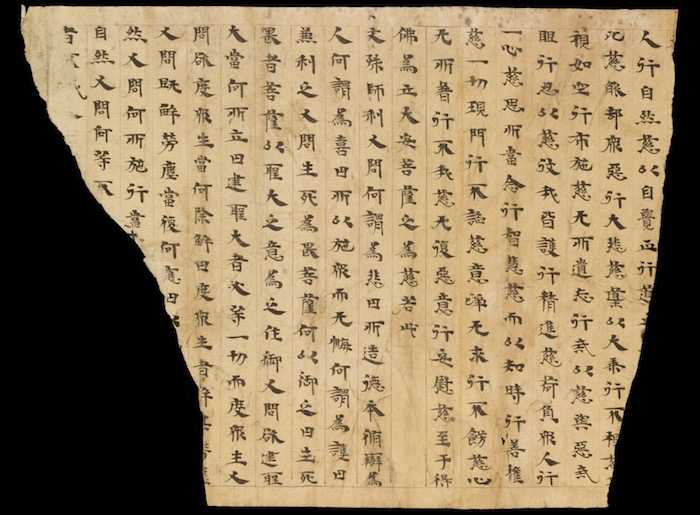 人行自然慈以自覺正行道
比慈能却眾惡行大悲慈導以大乘行不視慈
視如空行布施慈无所遺忘行戒以慈與惡戒
眼行忍以慈彼我皆護行精進慈荷負眾人行
一心慈思所當念行智慧慈而以知時行善權
慈一切現門行不諂慈意淨无求行不飾慈心
无所著行不我慈无復惡意行安慰慈至于得
佛為立大安菩薩之為慈若此
文殊師利又問何謂為悲曰所造德本循辯為
人何謂為喜曰所以施眾而无悔何謂為護曰
兼利之又問生死為畏菩薩何以御之曰生死
畏者菩薩以聖大之意為之作御又問欲建聖
大當何所立曰建聖大者必等一切而度眾生又
問欲度眾生當何除解曰度眾生者解其勞塵
又問既解勞塵當復何應曰已
然又問何所施行當
自然又問何等不
者